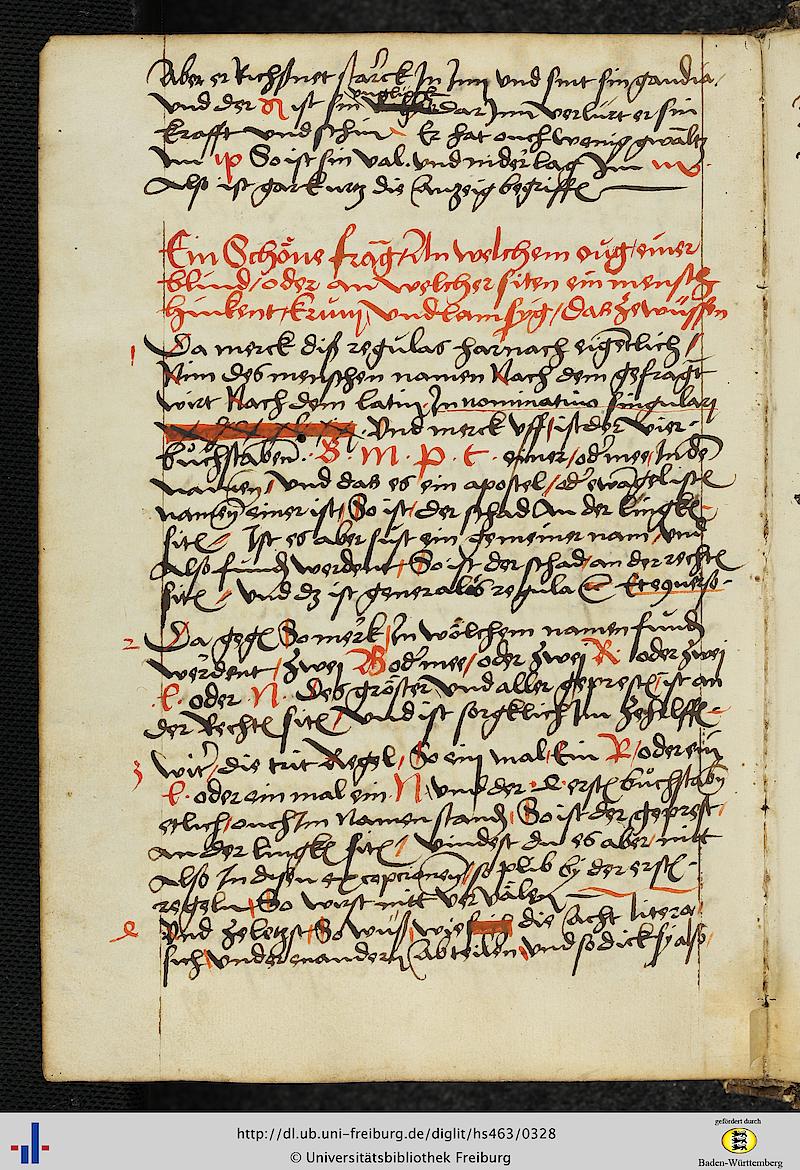 Aber er Richsnet starck In Inn und sint sin gaudia
und der ist sin unglück dar Inn verlürt er sin
krafft und schin Er hat ouch wenig gwaltz
Im So ist sin val und niderlag Im
Also ist gar kurtz die Anzeig begriffen
Ein Schöne frag / An welchem oug / einer
blind / oder an welcher siten ein mensch
hinkent / krum / und lam syg / das ze wüssen
1 Da merck diß regulas harnach eigentlich /
Nim des menschen namen Nach dem gefragt
wirt Nach dem latin / In nominativo singulari
Und merck uff / ist der vier
buchstaben . B . M . P . T . einer / oder mee / In den
namen / und das es ein apostel / oder ewangelisten
namen einer ist / So ist / der schad An der lingken
siten / Ist es aber sust ein gemeiner nam / und
Also funden werdent / So ist der schad / an der rechten
siten / und dz ist generalis regula Et econverso
2 Da gegen So merck / In wölchem namen funden
werdent / zwei B oder mee / oder zwei R . oder zwei
L . oder N . Des gröster und aller gepresten / ist an
der Rechten siten / und ist sorgklich Im ze helffen
3 Witer / die trit Regel / So ein mal / Ein R / oder ein
L . oder ein mal ein N / und der 4 ersten buchstaben
etlich / ouch Im Namen stand / So ist der geprest /
an der lingken siten / vindest du es aber / nitt
Also In disen excepcionen / so plib by der ersten
regeln / So wirst nitt vervälen
4 Und ze letzst / So wüß / wie die acht litera
sich / under enandern / Ab teilen / und so dick sy also
http://dl.ub.uni-freiburg.de/diglit/hs463/0328
© Universitätsbibliothek Freiburg
gefördert durch
Baden-Württemberg